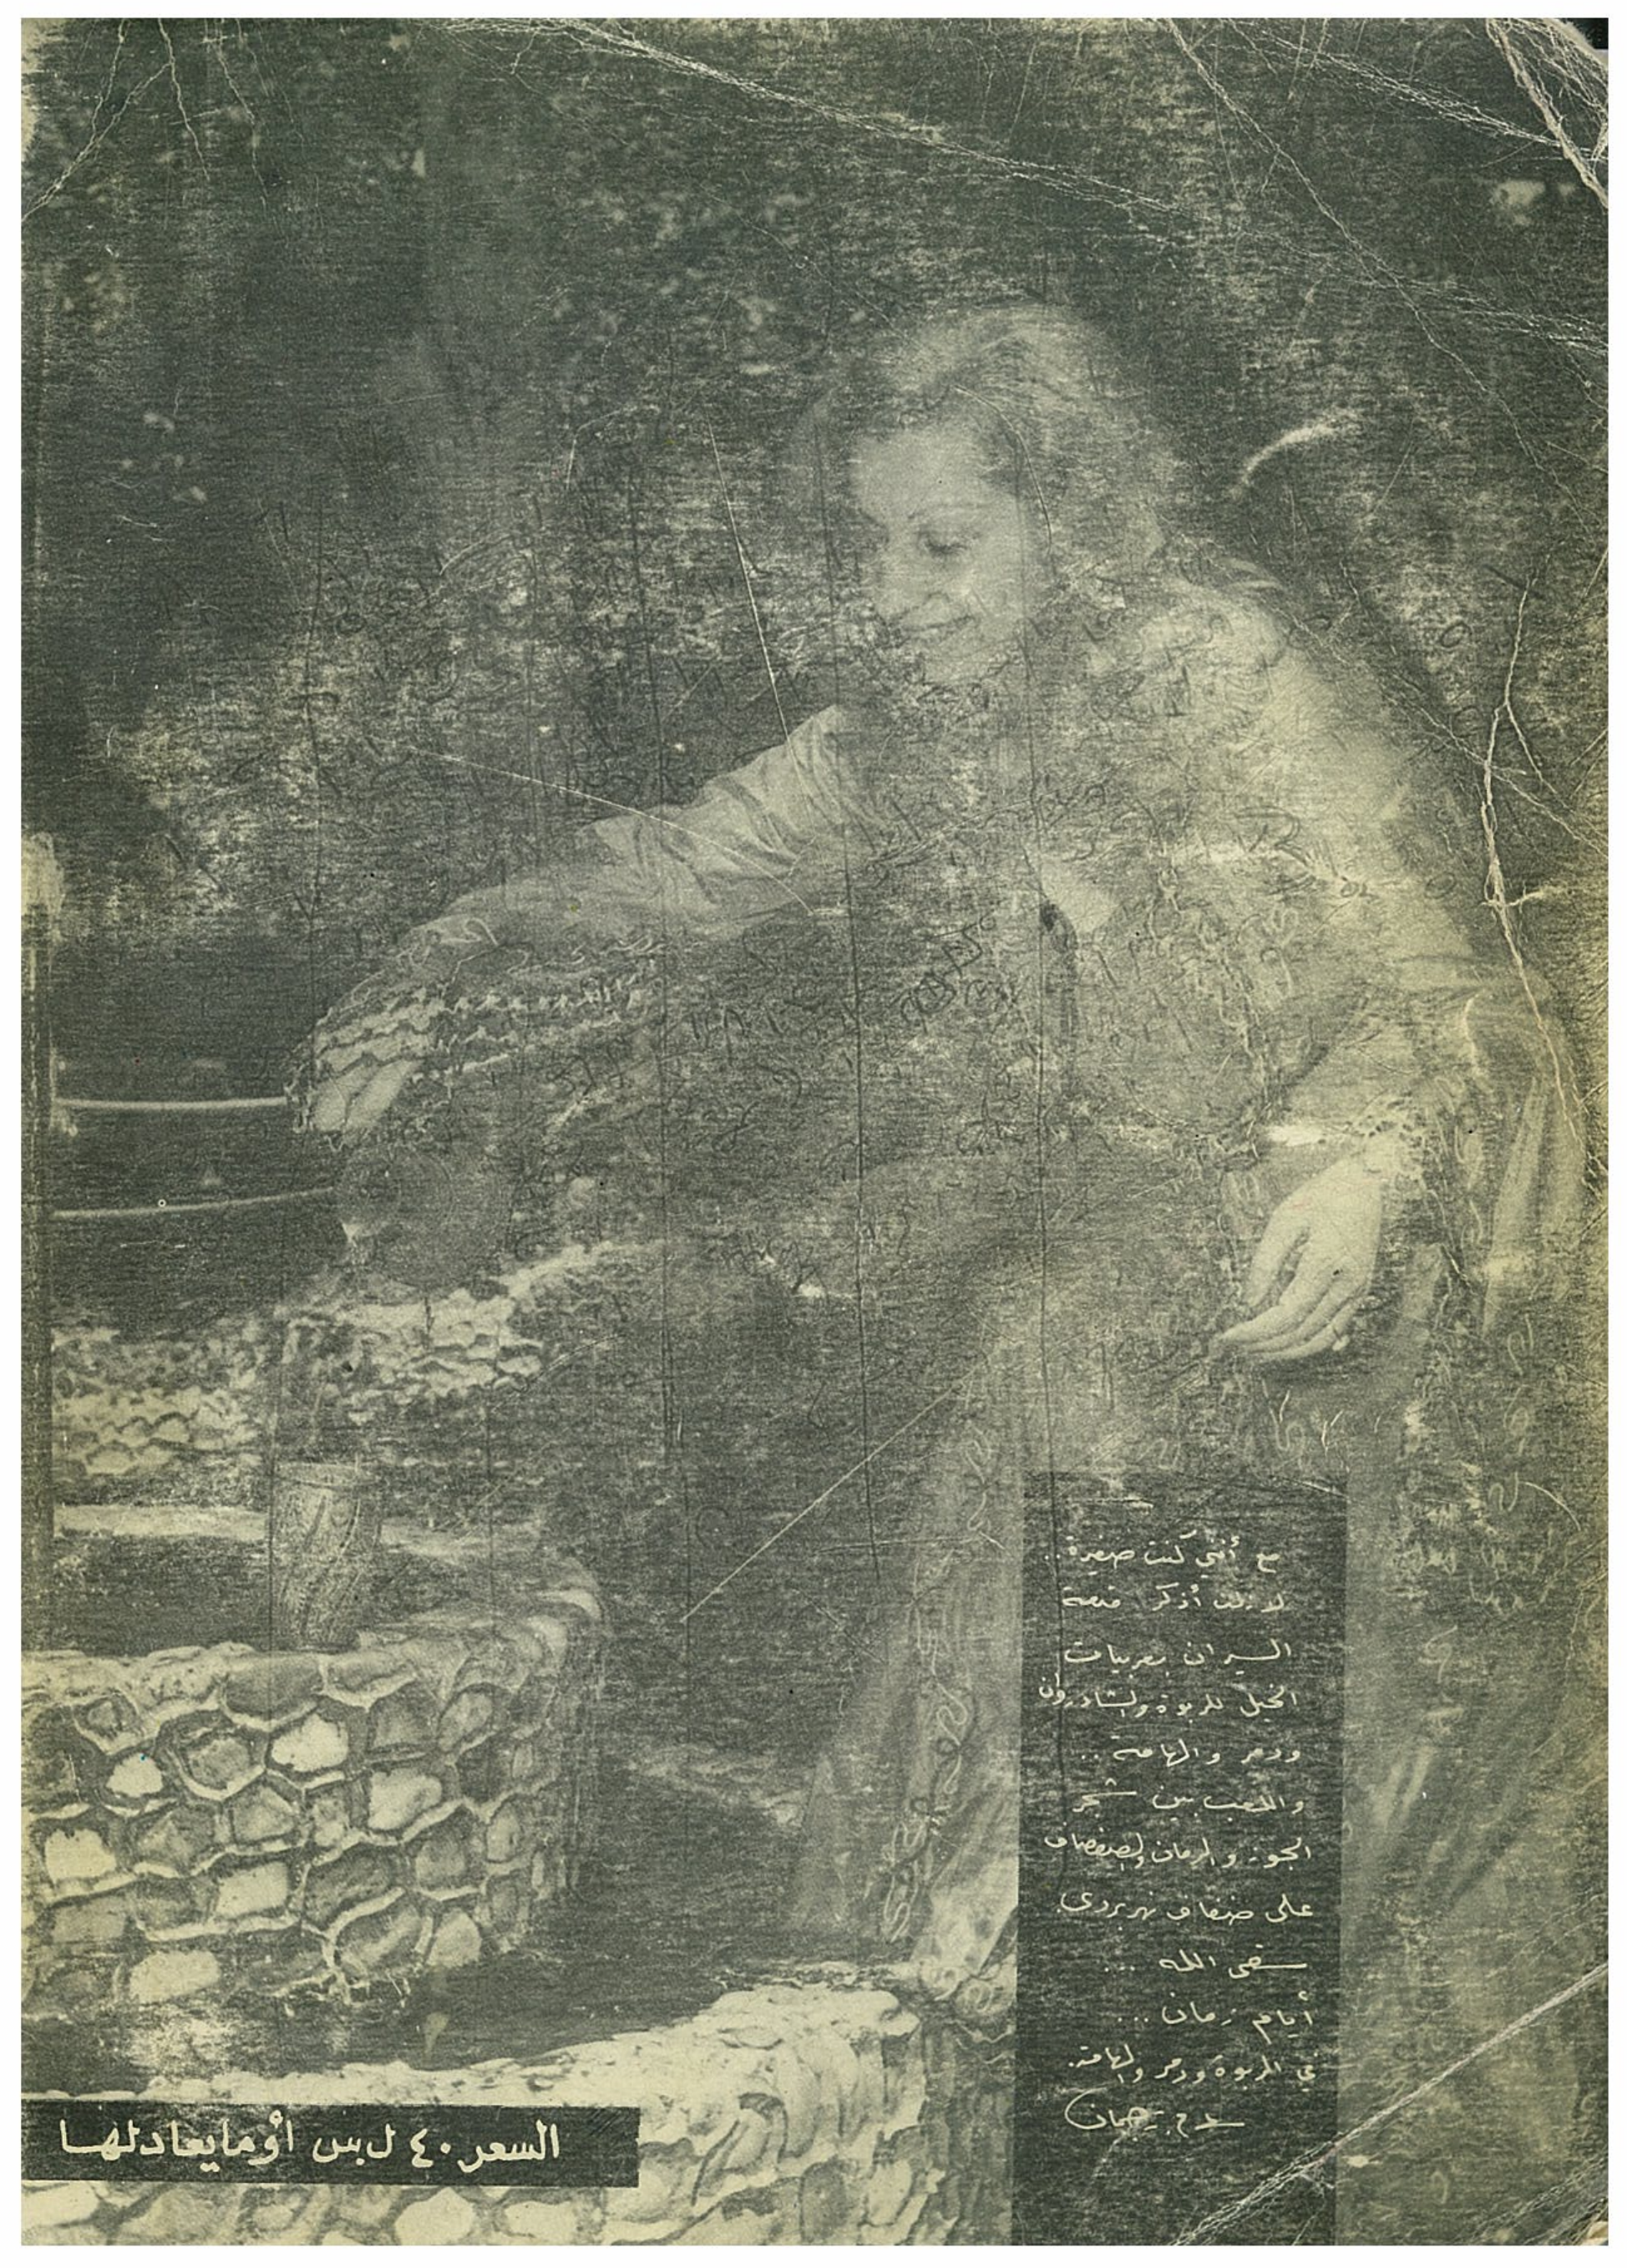 مع أنني كنت صغيرة..
لا زلت أذكر قصة
السيران بعربيات
الخيل للربوة والشادروان
ودمر والهامة ..
واللعب بين شجر
الجوز والرمان والصفصاف
على ضفاف نهر بردى
سقى الله ...
أيام زمان ...
في الربوة ودمر والهامة.
السعر ٤٠ ل.س أو ما يعادلها